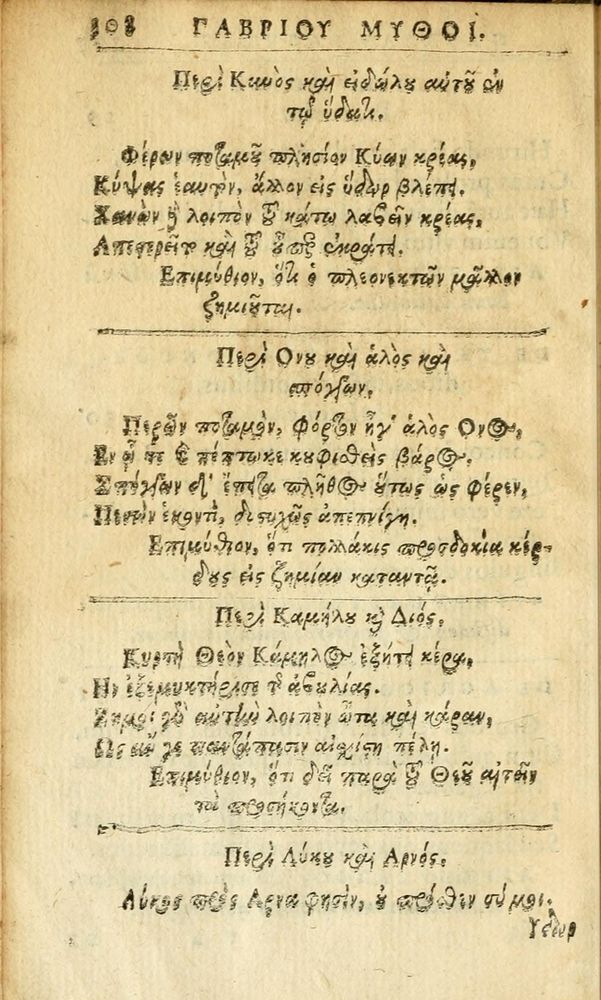 308 ΓΑΒΡΙΟΥ ΜΥΘΟΙ.
Περὶ Κυνὸς καὶ εἰδώλου αὐτοῦ ἐν
τῷ ὕδατι.
Φέρων ποταμοῦ πλησίον Κύων κρέας,
Κύψας ἑαυτὸν, ἄλλον εἰς ὕδωρ βλέπει.
Χανὼν δὲ λοιπὸν τοῦ κάτω λαβεῖν κρέας,
Απεστερεῖτο καὶ τοῦ ὅπερ ἐκράτει.
Επιμύθιον, ὅτι ὁ πλεονεκτῶν μᾶλλον
ζημιοῦται.
Περὶ Ονου καὶ ἁλὸς καὶ
σπόγγων.
Περῶν ποταμὸν, φόρτον ἦγ' ἁλὸς Ονος,
Εν ᾧ πέπτωκε κουφισθεὶς βάρος.
Σπόγγων δ' ἔπειτα πλῆθος οὕτως ὡς φέρεν,
Πεσὼν ἑκοντὶ, δυστυχῶς ἀπεπνίγη.
Επιμύθιον, ὅτι πολλάκις προσδοκία κέρ-
δους εἰς ζημίαν καταντᾷ.
Περὶ Καμήλου καὶ Διός.
Κυρτὴ Θεὸν Κάμηλος ἐξῄτει κέρα,
Ην ἐξεμυκτήρισε τῆς ἀβουλίας.
λοιπὸν ὦτα καὶ κάραν,
Ως ἂν γε παντάπασιν αἰσχίστη πέλῃ.
Επιμύθιον, ὅτι δεῖ παρὰ τοῦ Θεοῦ αἰτεῖν
τὰ προσήκοντα.
Περὶ Λύκου καὶ Αρνός.
Λύκος πρὸς Αρνα φησὶν, οὐ πρόσθεν σύ μοι.
Υδωρ